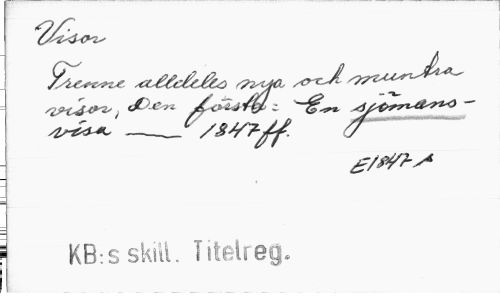 Visor
Trenne alldeles nya och muntra
visor, Den första: En sjömans-
visa —— 1847 ff.
E1847 s
KB:s skill. Titelreg.